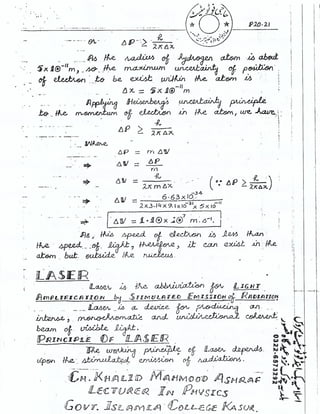 P20-21
or ΔP ≥ h / 2πΔx
As the radius of hydrogen atom is about
5×10⁻¹¹m, so the maximum uncertainty of position
of electron to be exist within the atom is
Δx = 5×10⁻¹¹m
Applying Heisenberg's uncertainty principle
to the momentum of electron in the atom, we have,
ΔP ≥ h / 2πΔx
Where
ΔP = mΔV
⇒ ΔV = ΔP / m
⇒ ΔV = h / 2πmΔx (∵ ΔP ≥ h / 2πΔx)
⇒ ΔV = 6.63×10⁻³⁴ / 2×3.14×9.1×10⁻³¹×5×10⁻¹¹
⇒ ΔV = 1.10×10⁷ m.s⁻¹.
As, this speed of electron is less than
the speed of light, therefore, it can exist in the
atom but outside the nucleus.
LASER
Laser is the abbriviation for LIGHT
AMPLIFICATION BY STIMULATED EMISSION OF RADIATION
Laser is a device for producing an
intense, monochromatic and unidirectional coherent
beam of visible light.
PRINCIPLE OF LASER
The working principle of laser depends
upon the stimulated emission of radiations.
CH. KHALID MAHMOOD ASHRAF
LECTURER IN PHYSICS
GOVT. ISLAMIA COLLEGE KASUR.